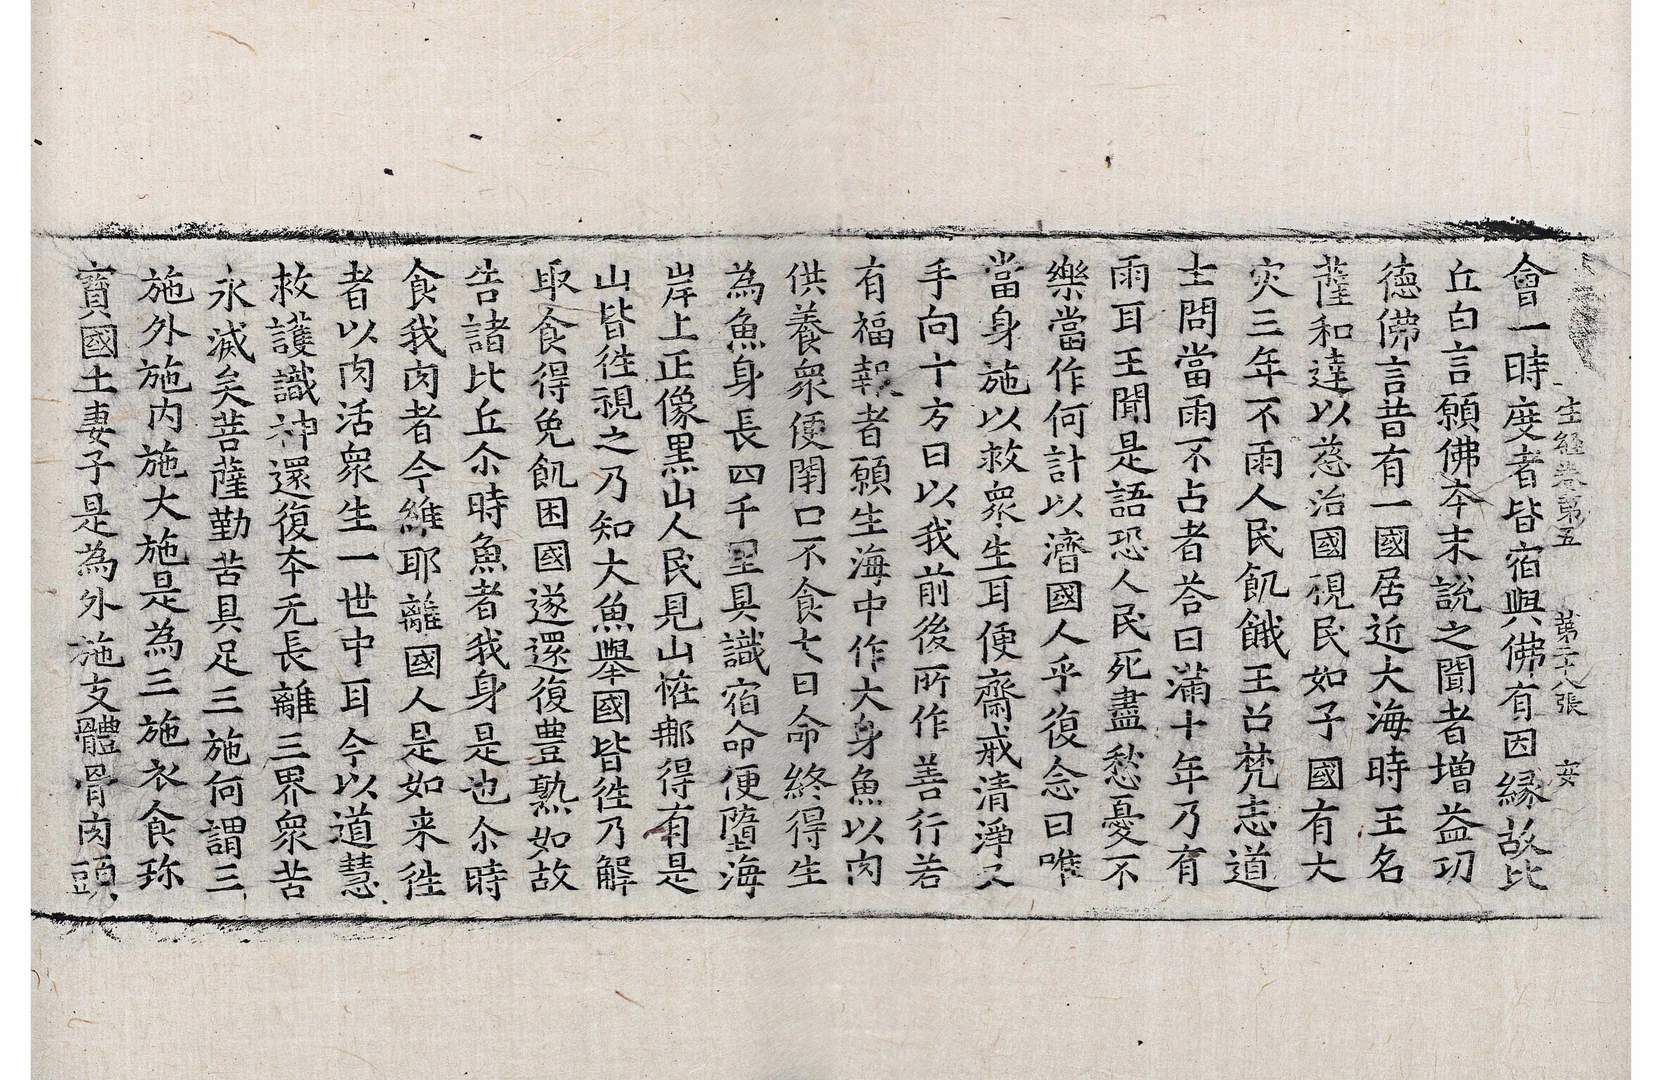 生經卷第五　第二十八張　安
會一時度者皆宿與佛有因緣故比
丘白言願佛本末說之聞者增益功
德佛言昔有一國居近大海時王名
薩和達以慈治國視民如子國有大
灾三年不雨人民飢餓王召梵志道
士問當雨不占者荅曰滿十年乃有
雨耳王聞是語恐人民死盡愁憂不
樂當作何計以濟國人乎復念曰唯
當身施以救衆生耳便齋戒清淨又
手向十方曰以我前後所作善行若
有福報者願生海中作大身魚以肉
供養衆便閇口不食七日命終得生
為魚身長四千里具識宿命便墮海
岸上正像黑山人民見山恠那得有是
山皆徃視之乃知大魚舉國皆徃乃解
取食得免飢困國遂還復豊熟如故
告諸比丘尒時魚者我身是也尒時
食我肉者今維耶離國人是如来徃
者以肉活衆生一世中耳今以道慧
救護識神還復本无長離三界衆苦
永滅矣菩薩勤苦具足三施何謂三
施外施内施大施是為三施衣食珎
寶國土妻子是為外施支體骨肉頭